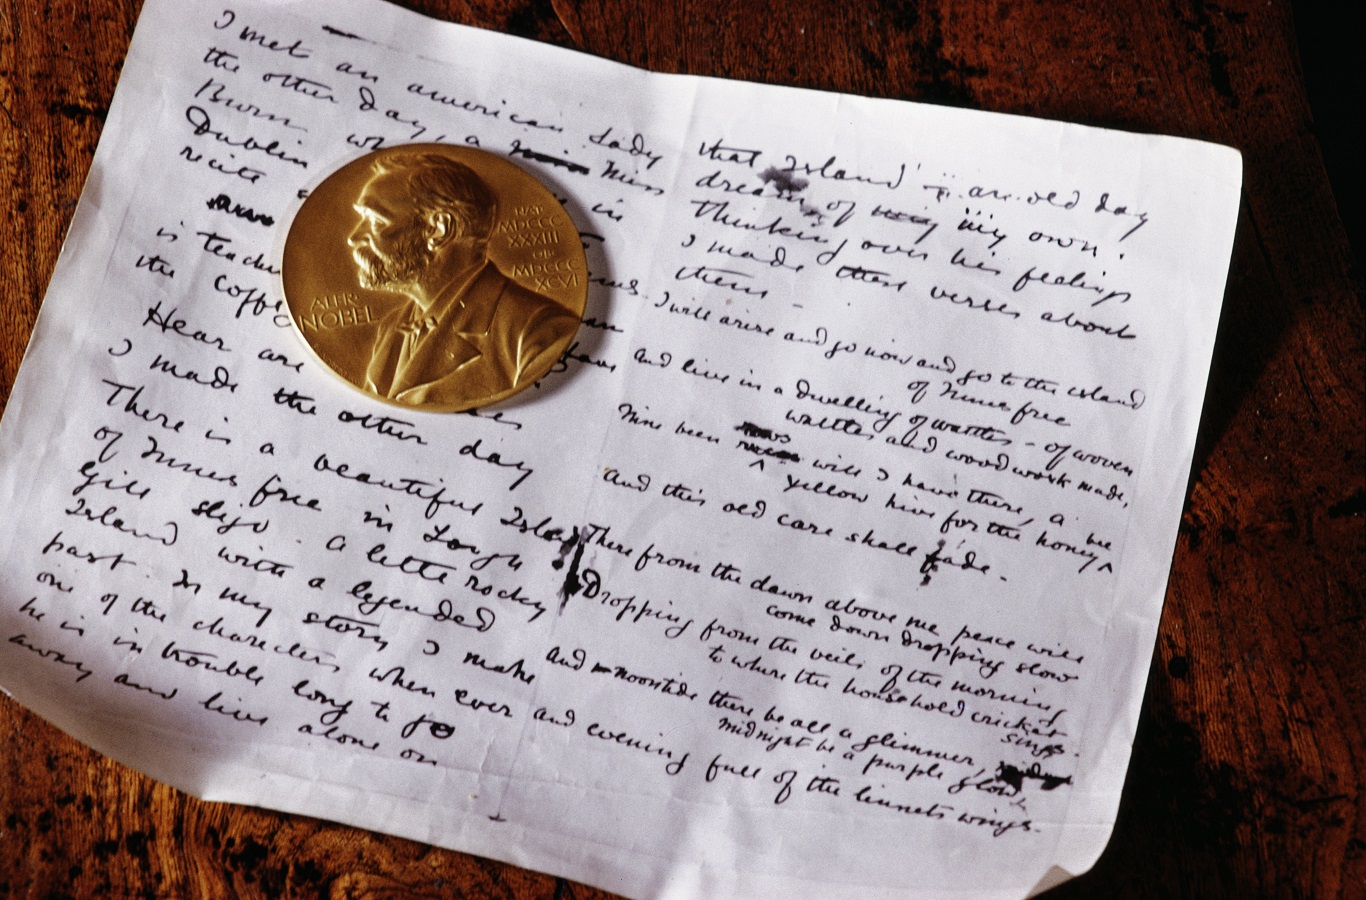 I met an american Lady
the other day, a Miss
Burn
Dublin in
recite
is teachi
the Coffe
Hear are
I made the other day
There is a beautiful Isla
of Innis free in Lough
Gill Sligo. A little rocky
Island with a legended
past. In my story I make
one of the charecters when ever
he is in trouble long to go
away and live
alone on
ALFR.
NOBEL
NAT.
MDCCC
XXXIII
OB.
MDCCC
XCVI
that Island — an old day
dream of my own.
Thinking over his feelings
I made these verses about
them —
I will arise and go now and go to the island
of Innis free
And live in a dwelling of wattles — of woven
wattles and wood work made,
Nine bean rows will I have there, a
yellow hive for the honey bee
And this old care shall fade.
There from the dawn above me peace will
come down dropping slow
Dropping from the veils of the morning
to where the household cricket
sings.
And noontide there be all a glimmer,
midnight be a purple glow
and evening full of the linnets wings.